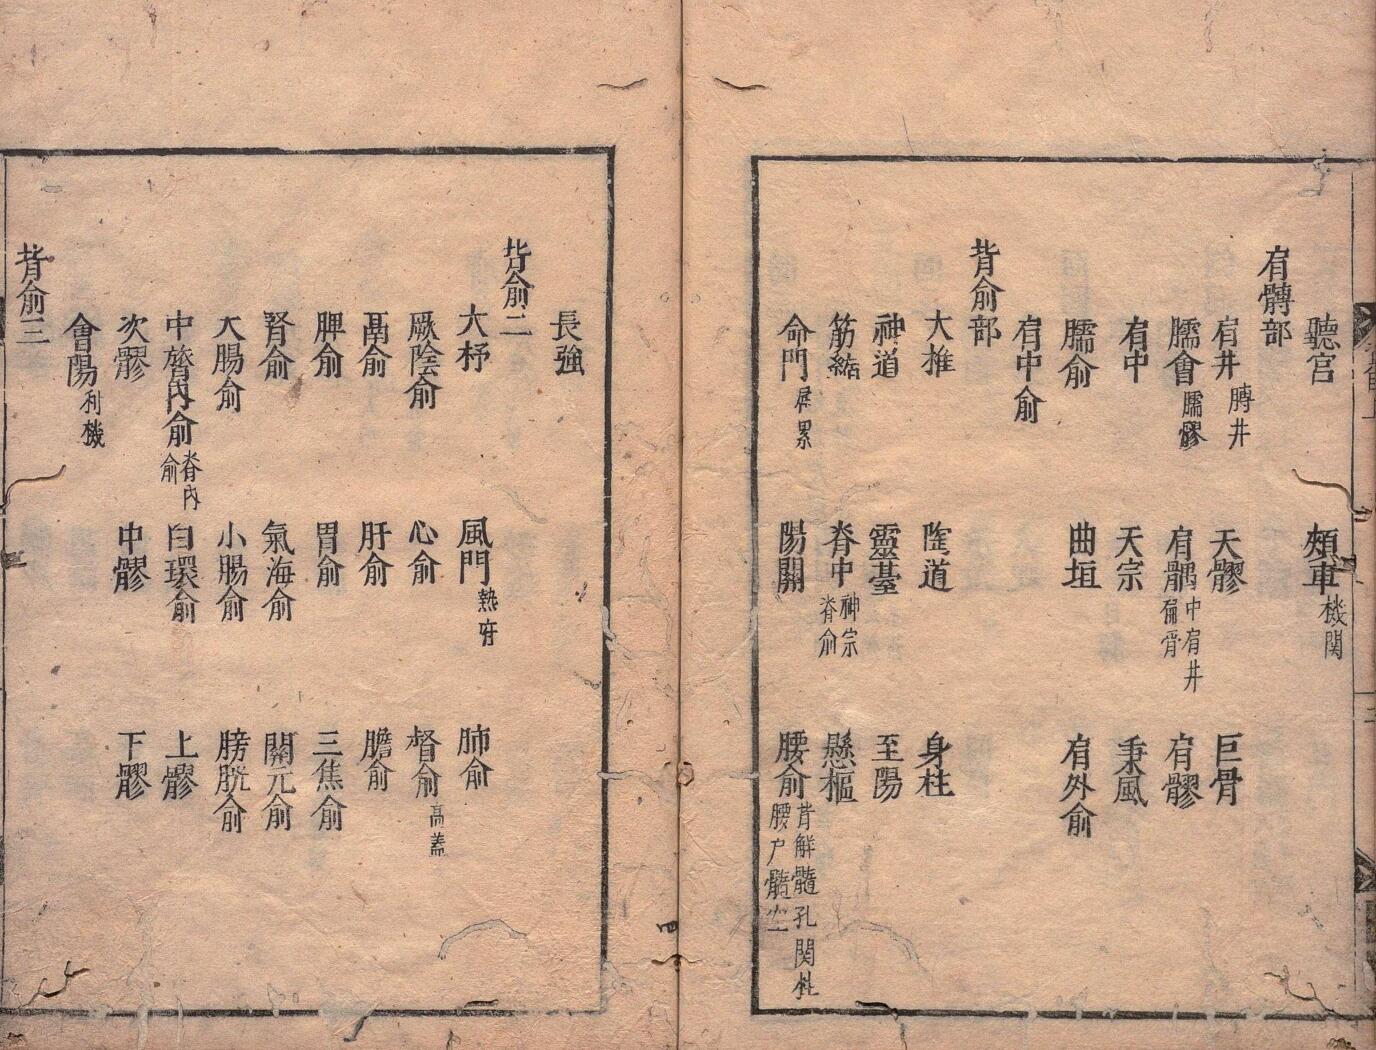 聽宮 頰車機関
肩髆部
肩井膊井 天髎 巨骨
臑會臑髎 肩髃中肩井偏骨 肩髎
肩中 天宗 秉風
臑俞 曲垣 肩外俞
肩中俞
背俞部
大椎 陶道 身柱
神道 靈臺 至陽
筋縮 脊中神宗脊俞 懸樞
命門屏累 陽關 腰俞背解髓孔関腰户髓空
長強
背俞二
大杼 風門熱府 肺俞
厥陰俞 心俞 督俞高蓋
膈俞 肝俞 膽俞
脾俞 胃俞 三焦俞
腎俞 氣海俞 關元俞
大腸俞 小腸俞 膀胱俞
中膂內俞脊内俞 白環俞 上髎
次髎 中髎 下髎
會陽利機
背俞三
四